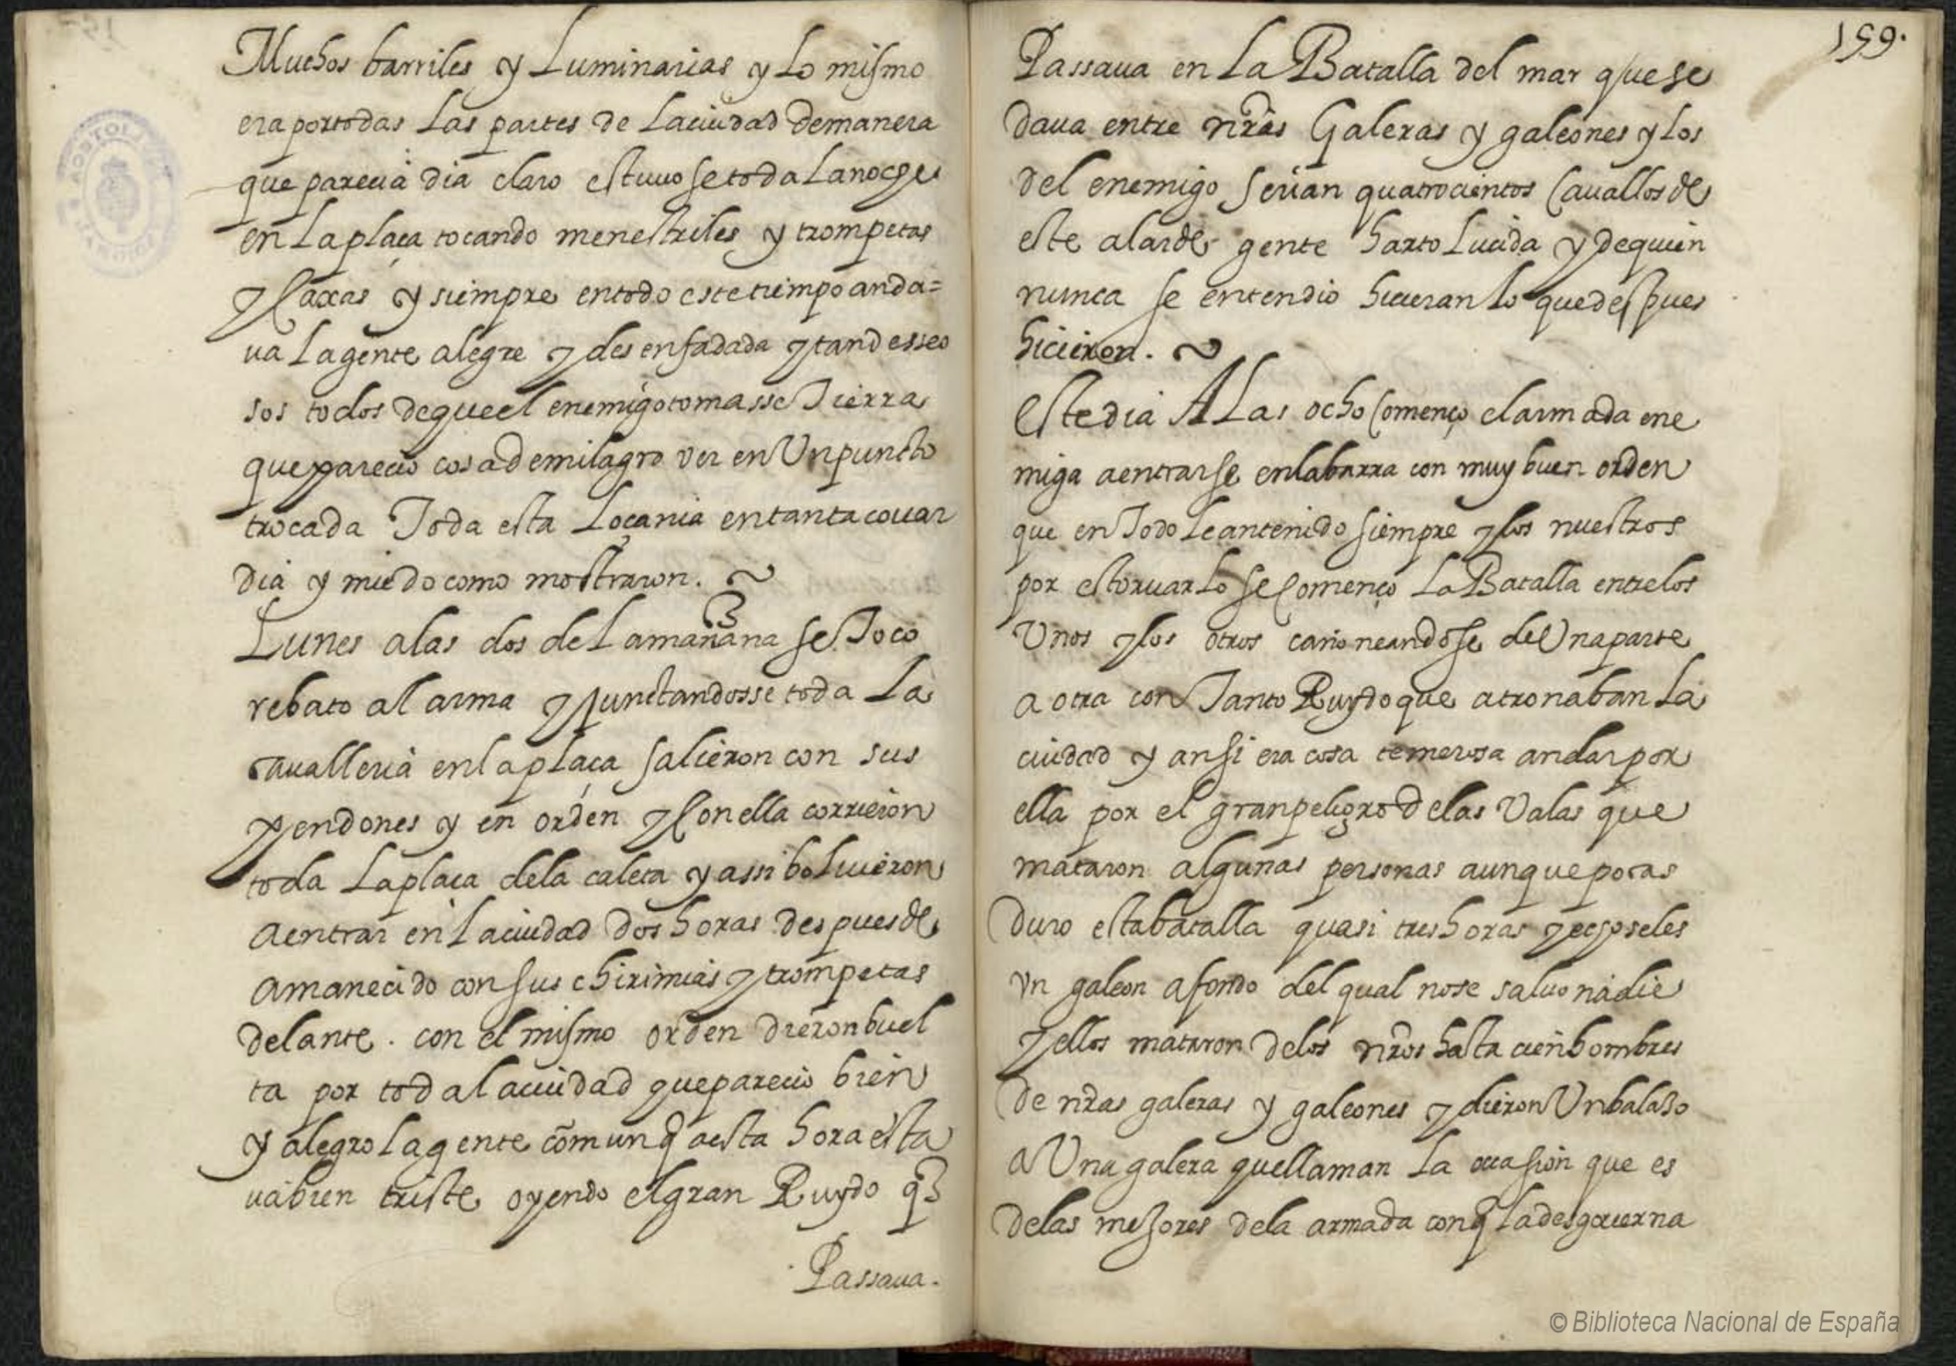 Muchos barriles y Luminarias y Lo mismo
era portodas Las partes de Laciudad Demanera
que parecia dia claro estuuo se toda La noche
en La plaça tocando menestriles y trompetas
y Caxas y siempre entodo este tiempo anda=
ua La gente alegre y desenfadada y tan desseo
sos todos de que el enemigo tomasse Tierra
que parecio cosa de milagro ver en Un puncto
trocada Toda esta Loçania en tanta couar
dia y miedo como mostraron.
Lunes a las dos de La mañana se Toco
rebato al arma y Junctandosse toda La
caualleria en la plaça salieron con sus
pendones y en orden y Con ella corrieron
toda La plaça de la caleta y assi boluieron
A entrar en La ciudad dos horas despues de
Amanecido con sus chirimias y trompetas
delante. con el mismo orden dieron buel
ta por toda La ciudad que parecio bien
y alegro La gente comun q̃ a esta hora esta
ua bien triste oyendo el gran Ruydo q̃
Passaua.
159.
Passaua en La Batalla del mar que se
daua entre nr̃as Galeras y galeones y Los
del enemigo Serian quatrocientos Cauallos de
este alarde gente harto Lucida y de quien
nunca se entendio hicieran Lo que despues
hicieron.
Este dia A Las ocho Començo el armada ene
miga a entrarse en la barra con muy buen orden
que en Todo Le an tenido siempre y los nuestros
por estoruarLo se Començo La Batalla entre los
Unos y los otros cañoneandose de Una parte
a otra con Tanto Ruydo que atronaban La
ciudad y ansi era cosa temerosa andar por
ella por el gran peligro de las Valas que
mataron algunas personas aunque pocas
Duro esta batalla quasi tres horas y echoseles
vn galeon a fondo del qual no se saluo nadie
y ellos mataron de los nr̃os hasta cien hombres
De nr̃as galeras y galeones y dieron Un balaZo
a Una galera que llaman La ocasion que es
de las meJores de la armada con q̃ La desgouerna
© Biblioteca Nacional de España